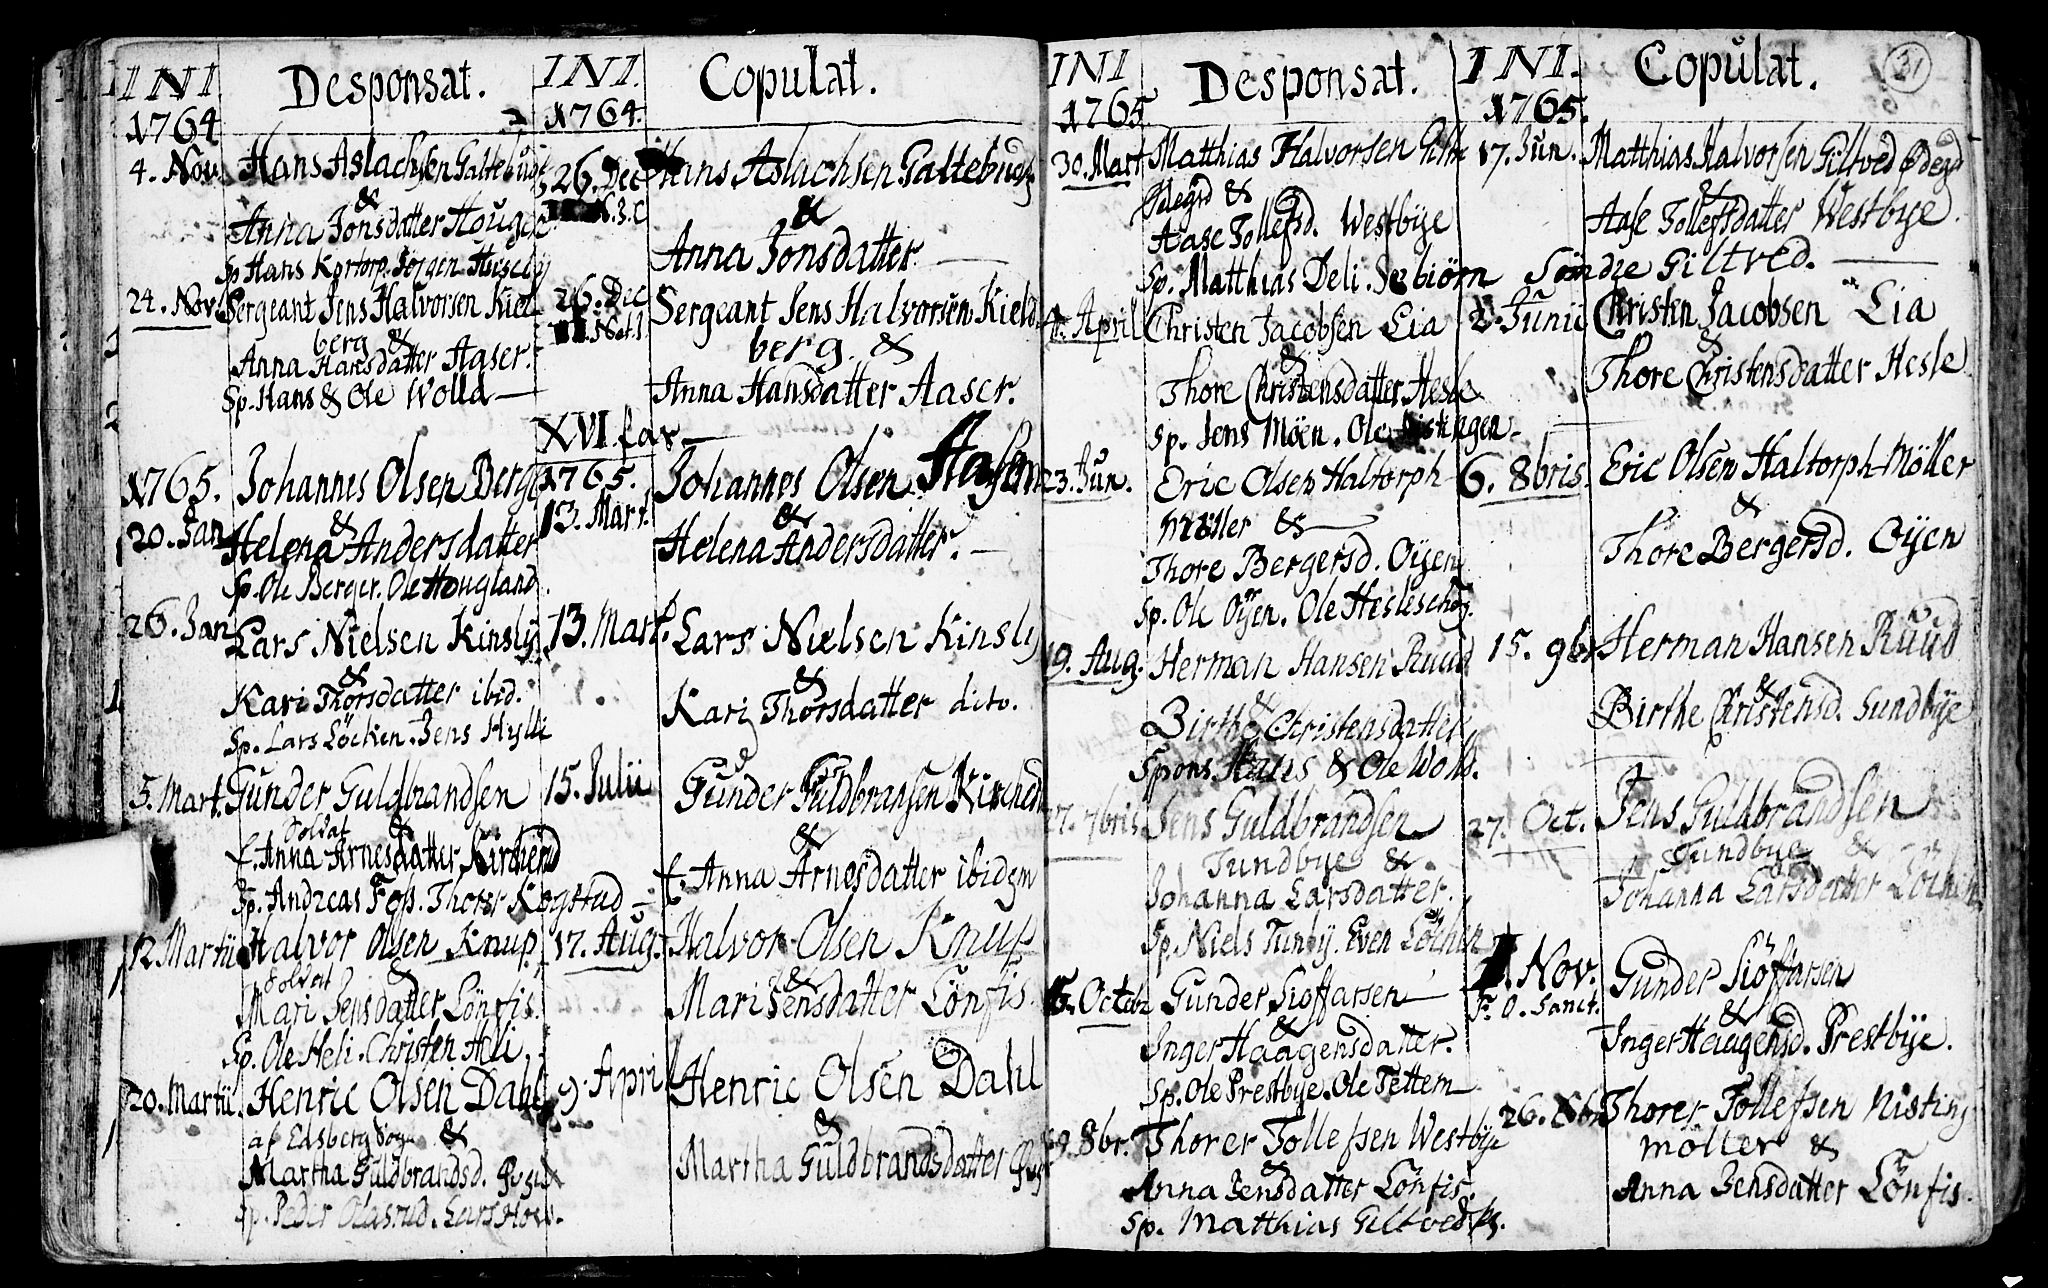 INI
1764
Desponsat.
4. Nov. Hans Aslachsen Galtebue
&
Anna Jonsdatter Houge
Sp Hans Kortorp. Jørgen Huseby
24. Nov. Sergeant Jens Halvorsen Kiel
berg &
Anna Hansdatter Aaser.
Sp. Hans & Ole Wolla
1765. Johannes Olsen Berge
20. Jan &
Helena Andersdatter
Sp. Ole Berger. Ole Hougland
26. Jan Lars Nielsen Kinsly
&
Kari Thorsdatter ibid.
Sp. Lars Löcken. Jens Hylli
5. Mart. Gunder Guldbrandsen
Soldat &
f. Anna Arnesdatter Kircherud
Sp. Andreas Foss. Thorer Kogstad
12. Martii Halvor Olsen Knup
Soldat &
Mari Jensdatter Lönfis.
Sp. Ole Heli. Christen Heli
20. Martii. Henric Olsen Dahl
af Edsberg Sogn &
Martha Guldbrandsd.
Sp. Peder Olasrud. Lars Hov.
INI.
1764.
Copulat.
26. Dec Hans Aslachsen Galtebueh
N.3.C &
Anna Jonsdatter.
26. Dec Sergeant Jens Halvorsen Kield
berg. &
Anna Hansdatter Aaser.
XVI. Cax
1765. Johannes Olsen
13. Mart. &
Helena Andersdatter.
13. Mart. Lars Nielsen Kinsly
&
Kari Thorsdatter dito.
15. Julii Gunder Guldbransen Kircherud
&
f. Anna Arnesdatter ibidem
17. Aug. Halvor Olsen Knup
&
Mari Jensdatter Lönfis.
9. April Henric Olsen Dahl
&
Martha Guldbrandsdatter
INI
1765.
Desponsat.
30. Mart Matthias Halvorsen Gilt
Ødegrd &
Aase Tollefsd. Westbye
Sp. Matthias Deli. Sebiörn Söndre Giltved.
April Christen Jacobsen Lia
&
Thore Christensdatter Hesle
Sp. Jens Möen. Ole Nistingen
23. Jun. Eric Olsen Haltorph
möller &
Thore Bergersd. Oyen
Sp. Ole Oyen. Ole Hesleschog.
19. Aug. Herman Hansen Ruud
&
Birthe Christensdatter
Spons. Hans & Ole Wolls.
27. 7bris Jens Guldbrandsen
Tundbye &
Johanna Larsdatter.
Sp. Niels Tunby. Even Löchen
6. Octobr Gunder Sioffarsen
&
Inger Haagensdatter.
Sp. Ole Prestbye. Ole Tettem
8br. Thorer Tollefsen Westbye
&
Anna Jensdatter Lönfis.
Sp. Matthias Giltved
INI.
1765.
Copulat.
31
17. Jun. Matthias Halvorsen Giltved Ødegrd
&
Aase Tollefsdatter Westbye.
2. Junii Christen Jacobsen Lia
&
Thore Christensdatter Hesle
6. 8bris. Eric Olsen Haltorph Möller
&
Thore Bergersd. Oyen
15. 9br Herman Hansen Ruud
&
Birthe Christensd. Sundbye
27. Oct. Jens Guldbrandsen
Tundbye &
Johanna Larsdatter Löchen
1. Nov. Gunder Sioffarsen
F. O. Sanct. &
Inger Haagensd. Prestbye.
26. Thorer Tollefsen Nisting
möller &
Anna Jensdatter Lönfis.